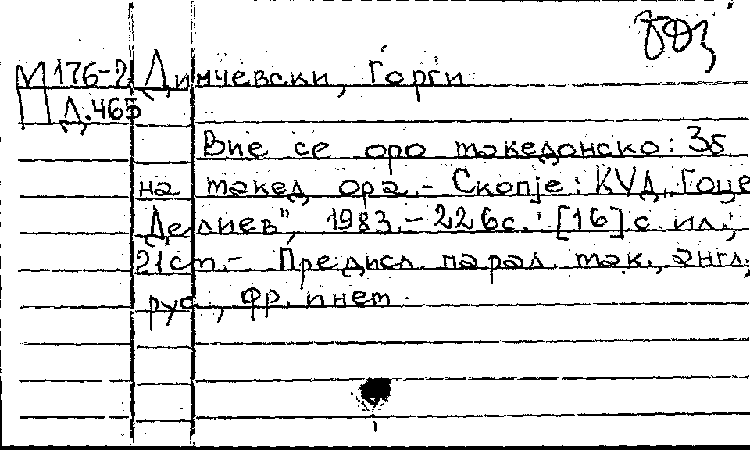 М176-2 Димчевски, Ѓорги
П Д.465
Вие се оро македонско: Зб
на макед ора.- Скопје: КУД „Гоце
Делчев", 1983.- 226с.: [16]с ил.;
21см.- Предисл парал мак., англ,
рус., фр. и нем